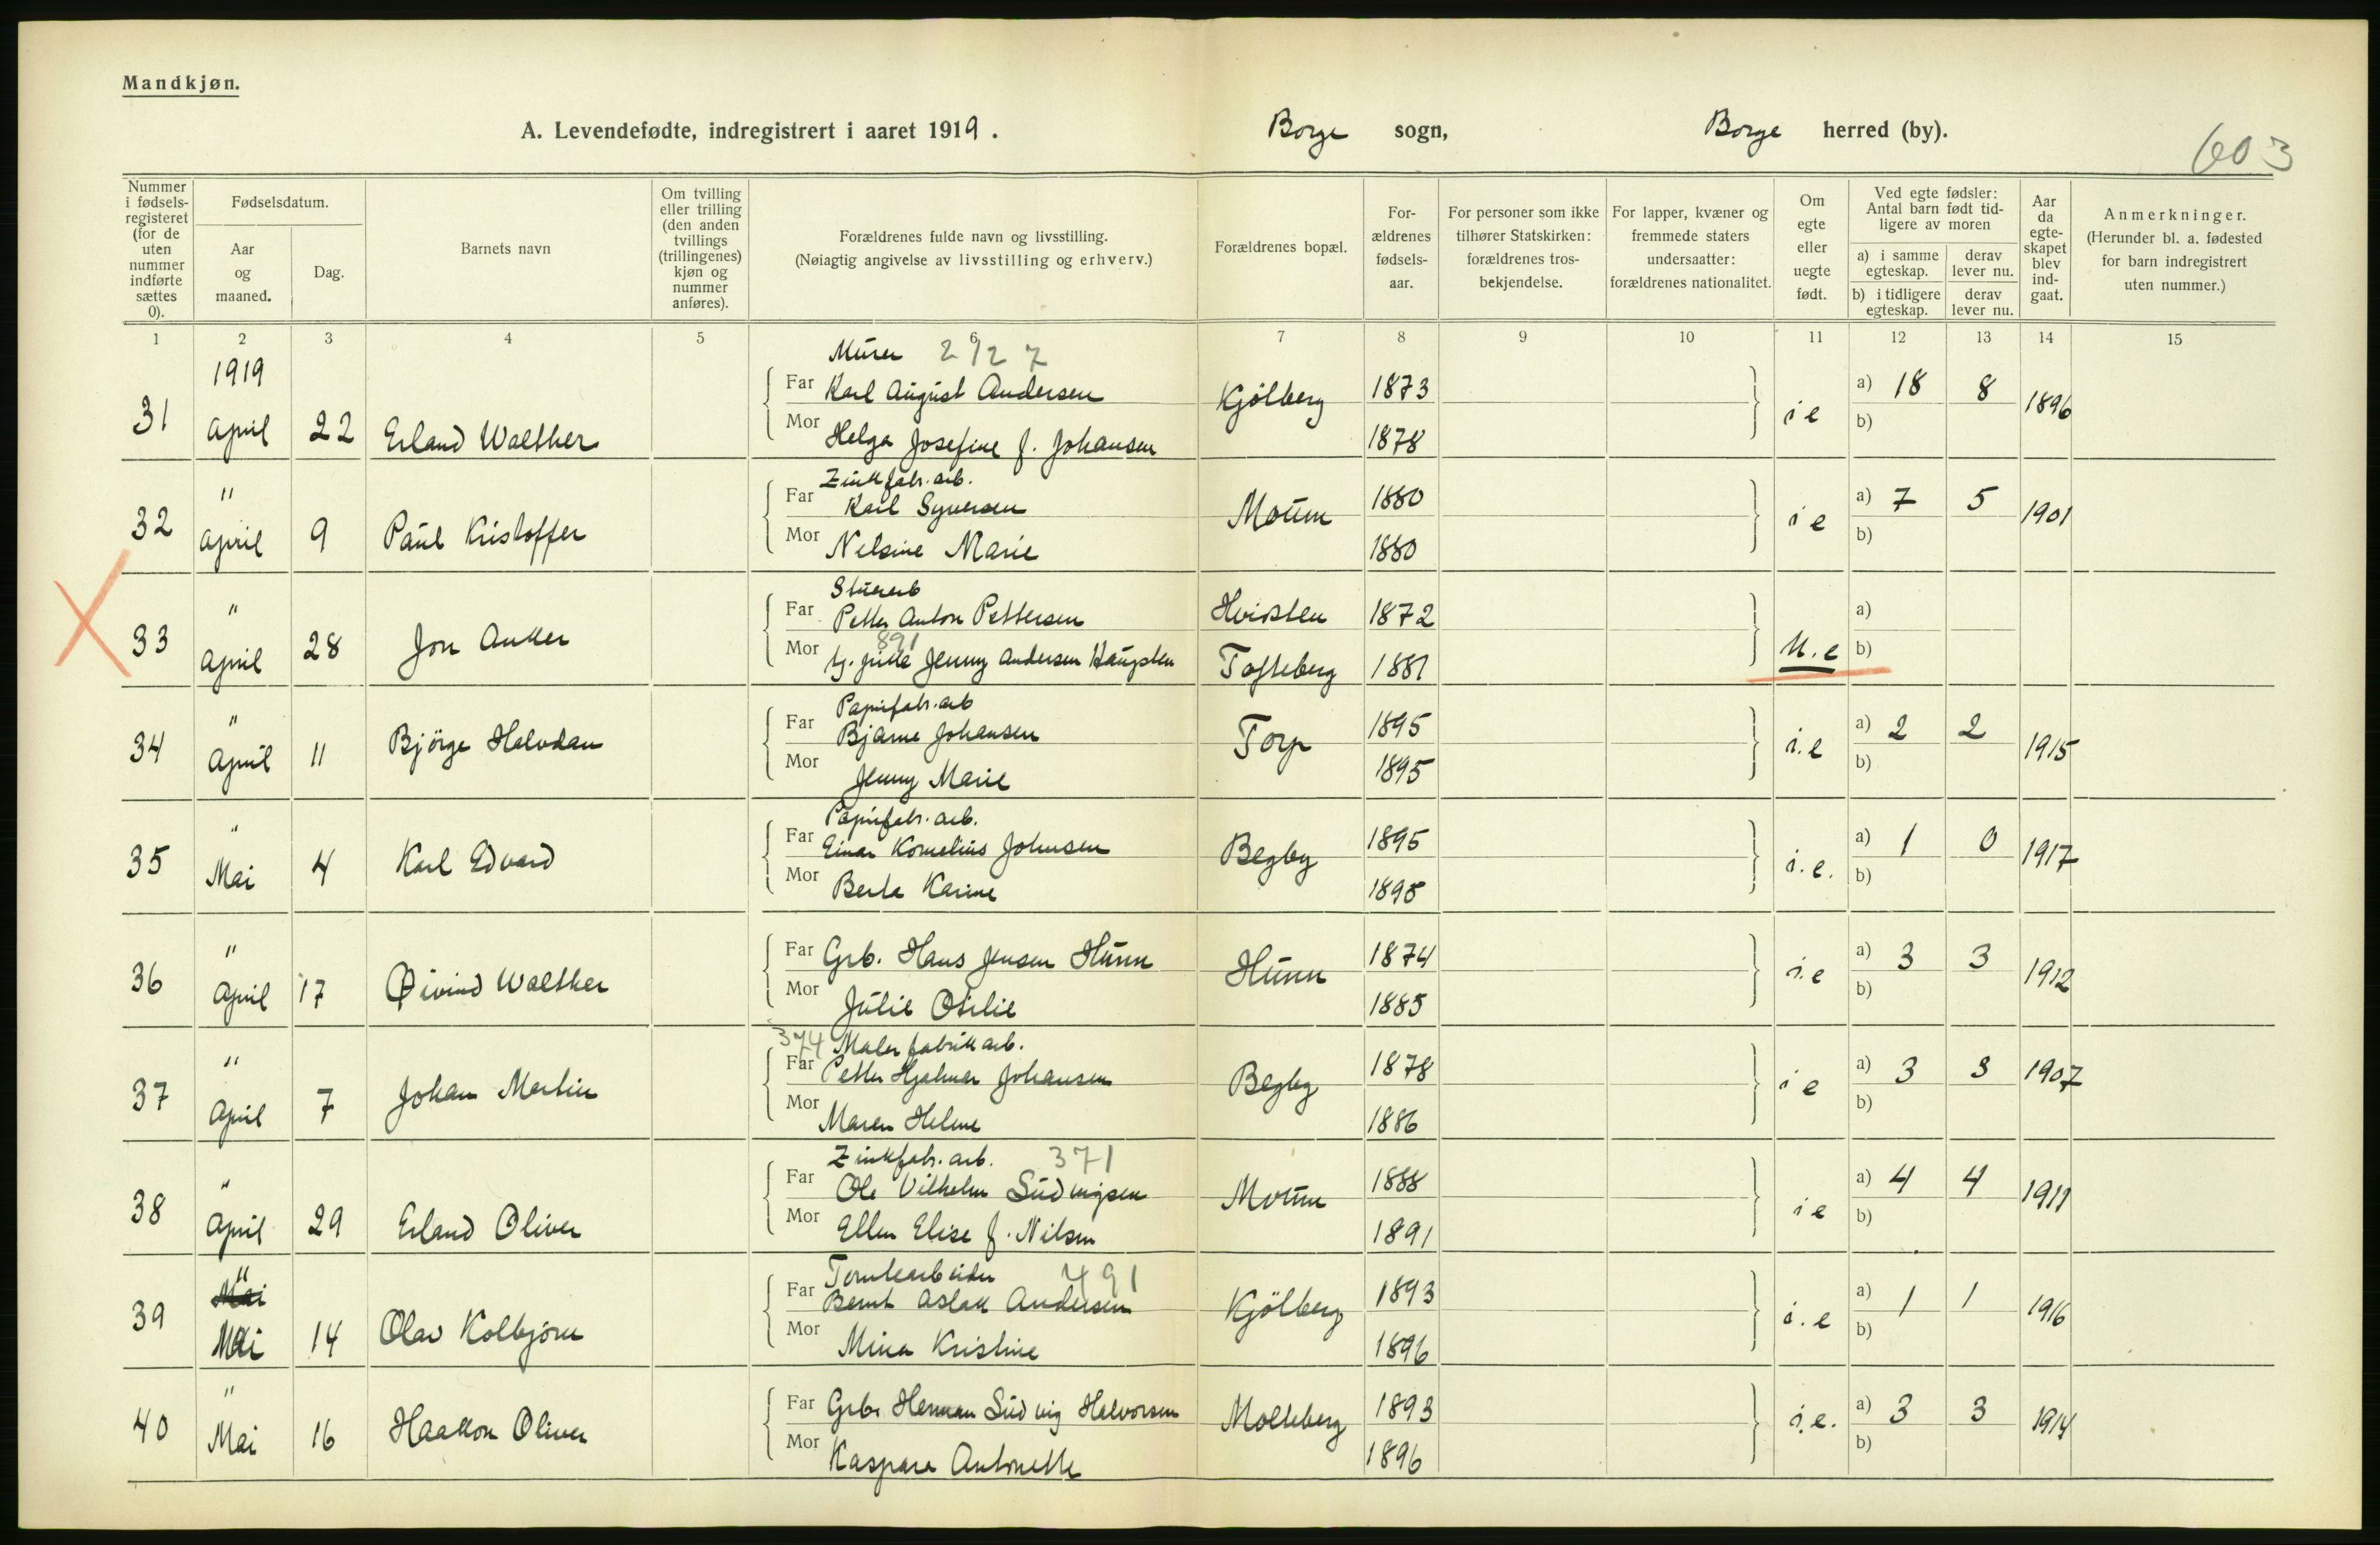 Mandkjøn.
A. Levendefødte, indregistrert i aaret 1919. Borge sogn, Borge herred (by).
603
Nummer i fødsels-registeret (for de uten nummer indførte sættes 0).
Fødselsdatum.
Aar og maaned.
Dag.
Barnets navn
Om tvilling eller trilling (den anden tvillings (trillingenes) kjøn og nummer anføres).
Forældrenes fulde navn og livsstilling.
(Nøiagtig angivelse av livsstilling og erhverv.)
Forældrenes bopæl.
For-ældrenes fødsels-aar.
For personer som ikke tilhører Statskirken: forældrenes tros-bekjendelse.
For lapper, kvæner og fremmede staters undersaatter: forældrenes nationalitet.
Om egte eller uegte født.
Ved egte fødsler: Antal barn født tid-ligere av moren
a) i samme egteskap.
derav lever nu.
b) i tidligere egteskap.
derav lever nu.
Aar da egte-skapet blev ind-gaat.
Anmerkninger.
(Herunder bl. a. fødested for barn indregistrert uten nummer.)
1 2 3 4 5 6 7 8 9 10 11 12 13 14 15
1919
Murer 2127
Far Karl August Andersen 1873 a) 18 8
31 April 22 Erland Walther Kjölberg i e 1896
Mor Helga Josefine f. Johansen 1878 b)
" Zinkfabr. arb.
Far Karl Syversen 1880 a) 7 5
32 April 9 Paul Kristoffer Moum i e 1901
Mor Nelsine Marie 1880 b)
" Stuerarb
Far Petter Anton Pettersen Hvidsten 1872 a)
33 April 28 Jon Anker
891
Mor tj. Jenny Andersen Haugsten Tofteberg 1881 U.e b)
" Papirfabr. arb
Far Bjarne Johansen 1895 a) 2 2
34 April 11 Björge Halvdan Torp i.e 1915
Mor Jenny Marie 1895 b)
" Papirfabr. arb.
Far Einar Kornelius Johnsen 1895 a) 1 0
35 Mai 4 Karl Edvard Begby i.e. 1917
Mor Berta Karine 1895 b)
"
Far Grb. Hans Jensen Hunn 1874 a) 3 3
36 April 17 Øivind Walther Hunn i.e 1912
Mor Julie Otilie 1885 b)
" 374 Malerfabrikarb.
Far Petter Hjalmar Johansen 1878 a) 3 3
37 April 7 Johan Martin Begby i e 1907
Mor Maren Helene 1886 b)
" Zinkfabr. arb. 371
Far Ole Vilhelm Ludvigsen 1888 a) 4 4
38 April 29 Erland Oliver Moum i e 1911
Mor Ellen Elise f. Nilsen 1891 b)
" Tomtearbeider 491
Mai
Far Bernt Aslak Andersen 1893 a) 1 1
39 Mai 14 Olav Kolbjörn Kjölberg i.e 1916
Mor Mina Kristine 1896 b)
"
Far Grbr Herman Ludvig Halvorsen 1893 a) 3 3
40 Mai 16 Haakon Oliver Molteberg i.e. 1914
Mor Kaspara Antonette 1896 b)